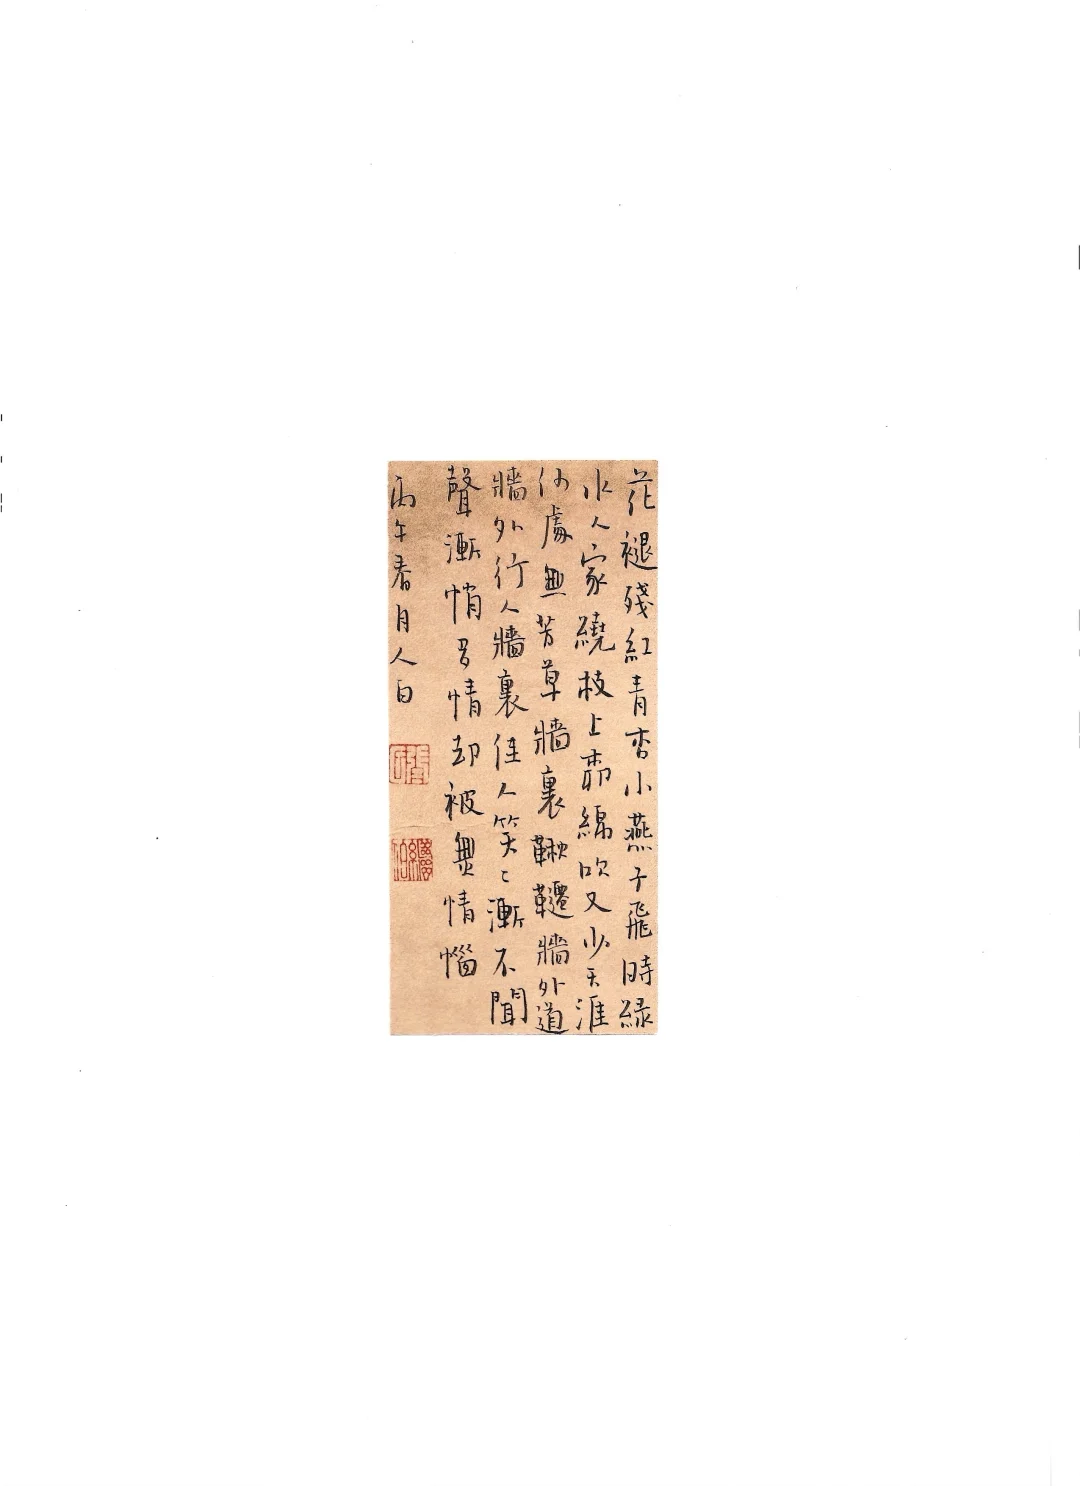 花褪殘紅青杏小燕子飛時緑
水人家繞枝上桺綿吹又少天涯
何處無芳草牆裏鞦韆牆外道
牆外行人牆裏佳人笑〻漸不聞
聲漸悄多情却被無情惱
丙午春月人白